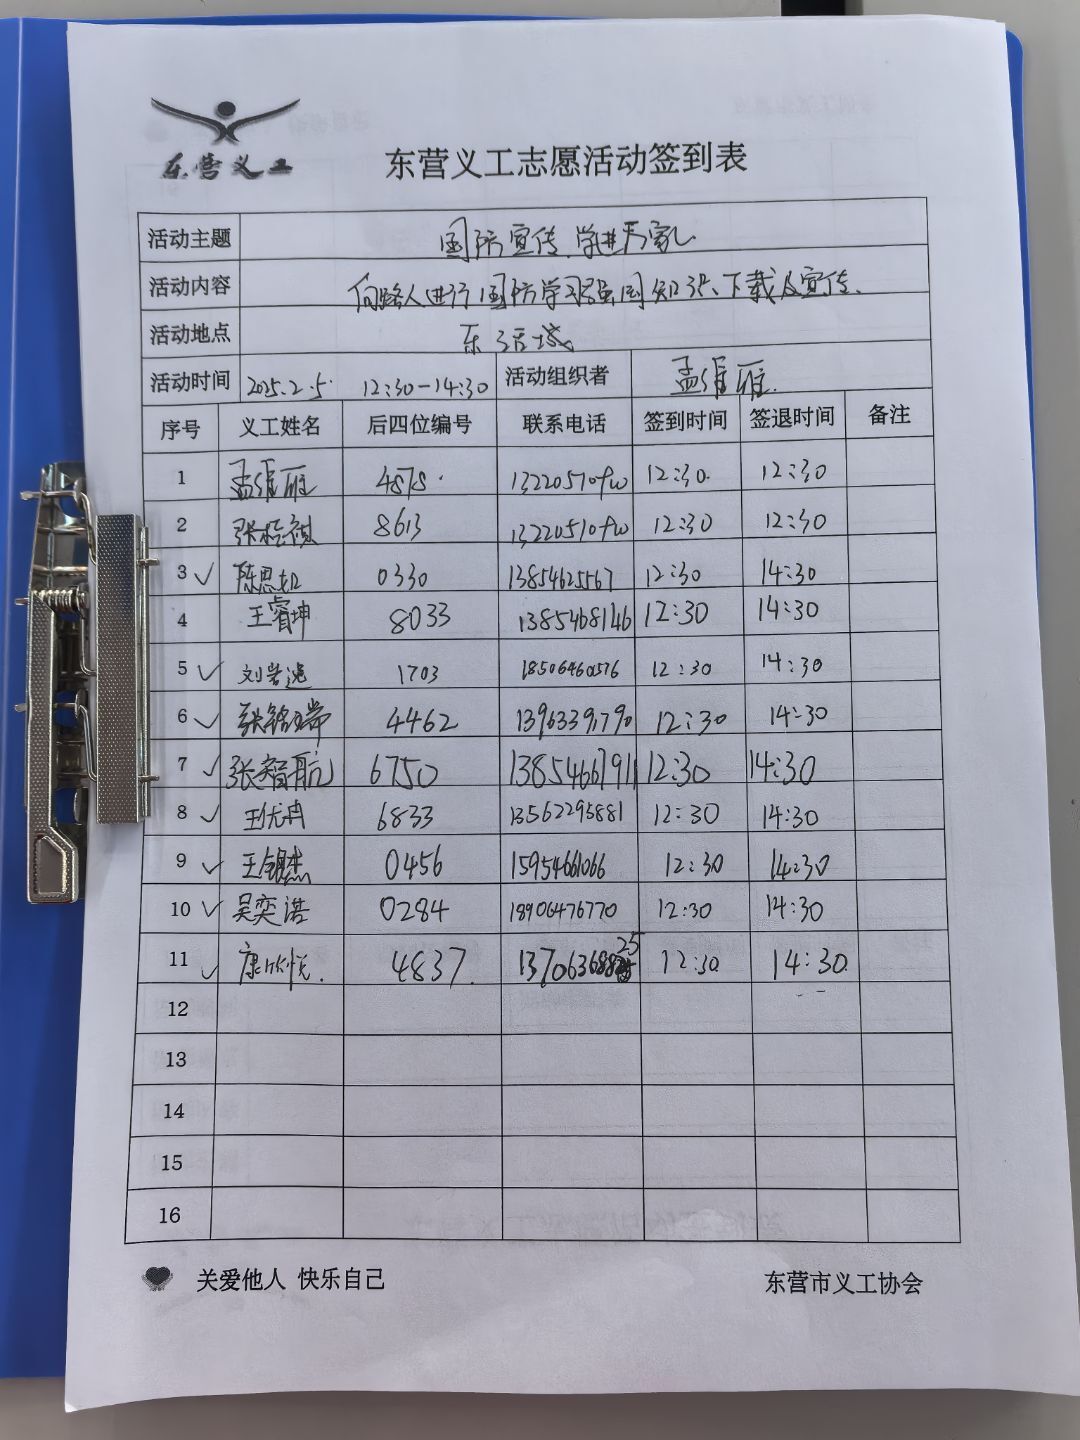 东营义工
东营义工志愿活动签到表
活动主题 国防宣传,学进万家
活动内容 向路人进行国防学习强国知识、下载及宣传.
活动地点 东 城
活动时间 2025.2.5. 12:30-14:30 活动组织者 孟维雁.
序号 义工姓名 后四位编号 联系电话 签到时间 签退时间 备注
1 孟维雁 4878. 12:30. 12:30
2 8613 12:30 12:30
3 ✓ 陈思如 0330 13854625567 12:30 14:30
4 王睿坤 8033 13854681446 12:30 14:30
5 ✓ 刘若逸 1703 18506460576 12:30 14:30
6 ✓ 张铭瑞 4462 12:30 14:30
7 ✓ 张智航 6750 12:30 14:30
8 ✓ 王优冉 6833 13562295881 12:30 14:30
9 ✓ 0456 15954661066 12:30 14:30
10 ✓ 吴奕诺 0284 18906476770 12:30 14:30
11 ✓ 康欣悦. 4837. 12:30 14:30.
12
13
14
15
16
关爱他人 快乐自己 东营市义工协会